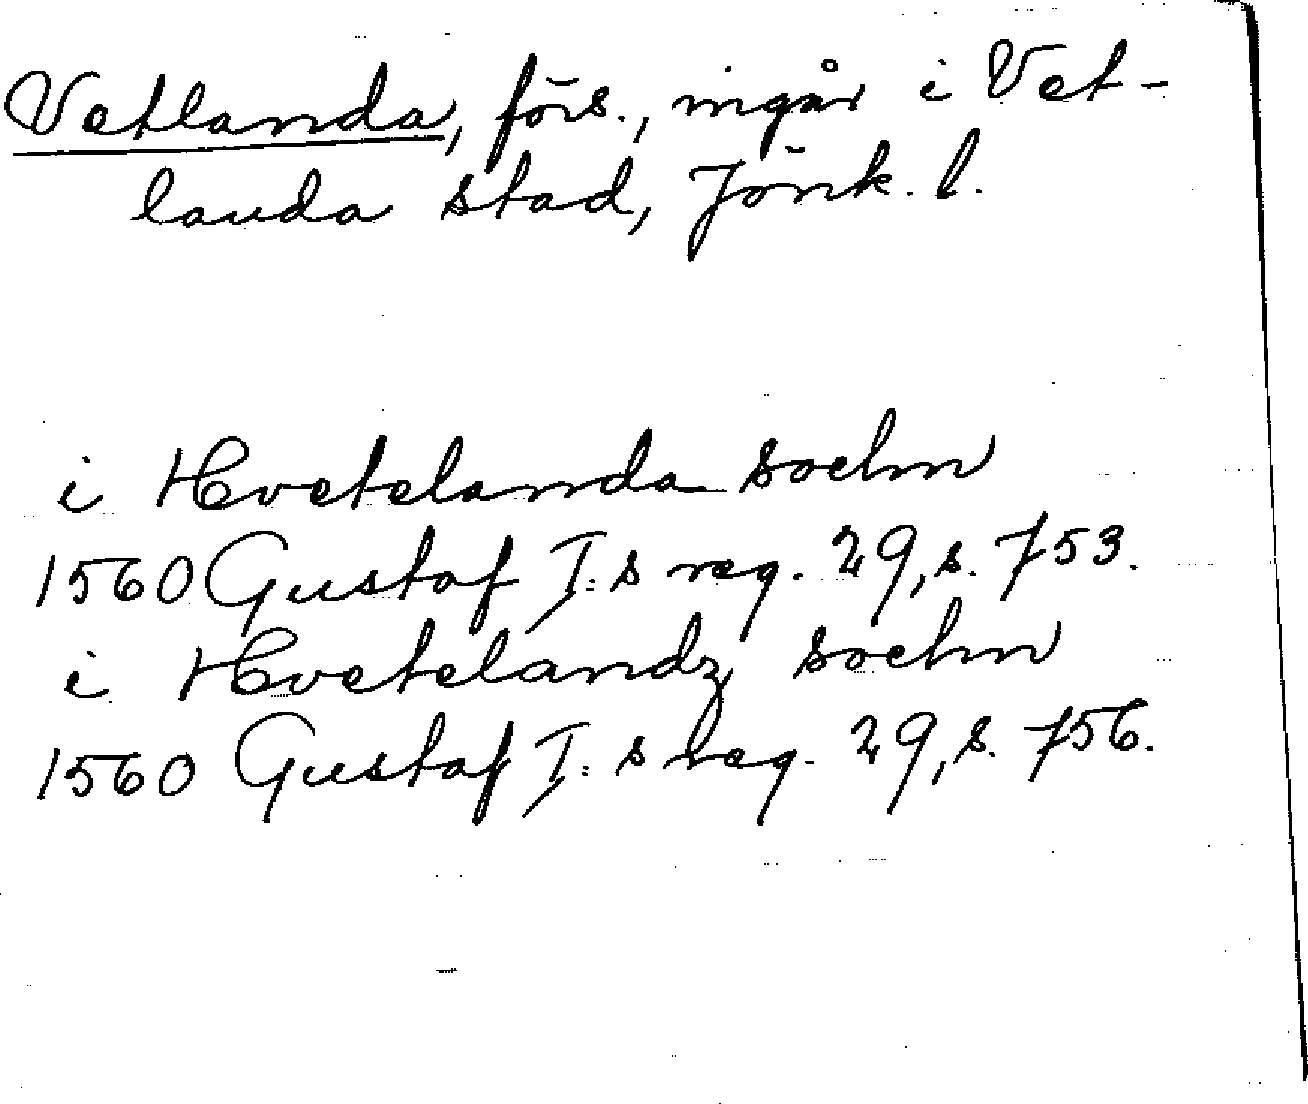 Vetlanda, förs., ingår i Vet-
landa stad, Jönk. l.
i Hvetelanda sochn
1560 Gustaf I:s reg. 29, s. 753.
i Hvetelandz sochn
1560 Gustaf I:s reg. 29, s. 756.